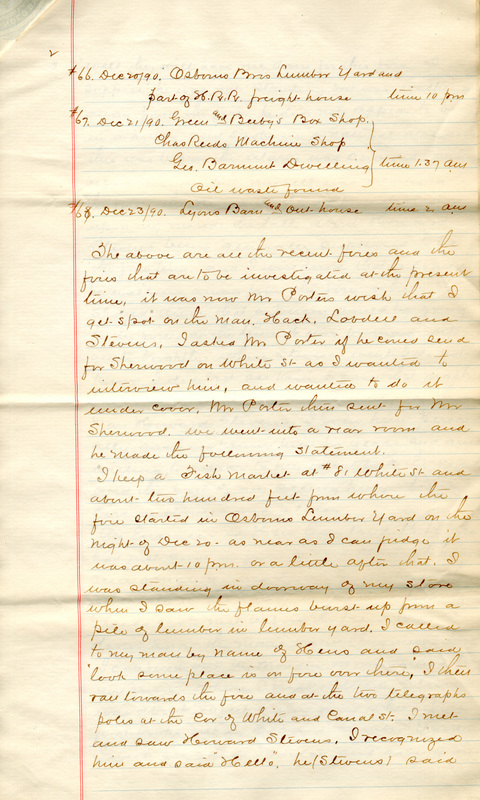 2
#66. Dec 20/90. Osborns Bros Lumber Yard and
part of H.R.R. freight house time 10 pm
#67. Dec 21/90. Green and Beeby's Box Shop.
Chas Reeds Machine Shop
Geo. Barnum Dwelling time 1.37 am
Oil waste found
#68. Dec 23/90. Lyons Barn and Out-house time 2 am
The above are all the recent fires and the
fires that are to be investigated at the present
time, it was now Mr Porters wish that I
get "spot" on the man. Hack, Lobdell and
Stevens, I asked Mr Porter if he could send
for Sherwood on White St as I wanted to
interview him, and wanted to do it
under cover, Mr Porter then sent for Mr
Sherwood. we went into a rear room and
he made the following statement.
"I keep a Fish Market at #81 White St and
about two hundred feet from where the
fire started in Osborns Lumber Yard on the
night of Dec 20 - as near as I can judge it
was about 10 pm. or a little after that. I
was standing in doorway of my store
when I saw the flames burst up from a
pile of lumber in lumber yard. I called
to my man by name of and said
"look some place is on fire over there", I then
ran towards the fire and at the two telegraphs
poles at the Cor of White and Canal St. I met
and saw Howard Stevens, I recognized
him and said "Hello", he (Stevens) said